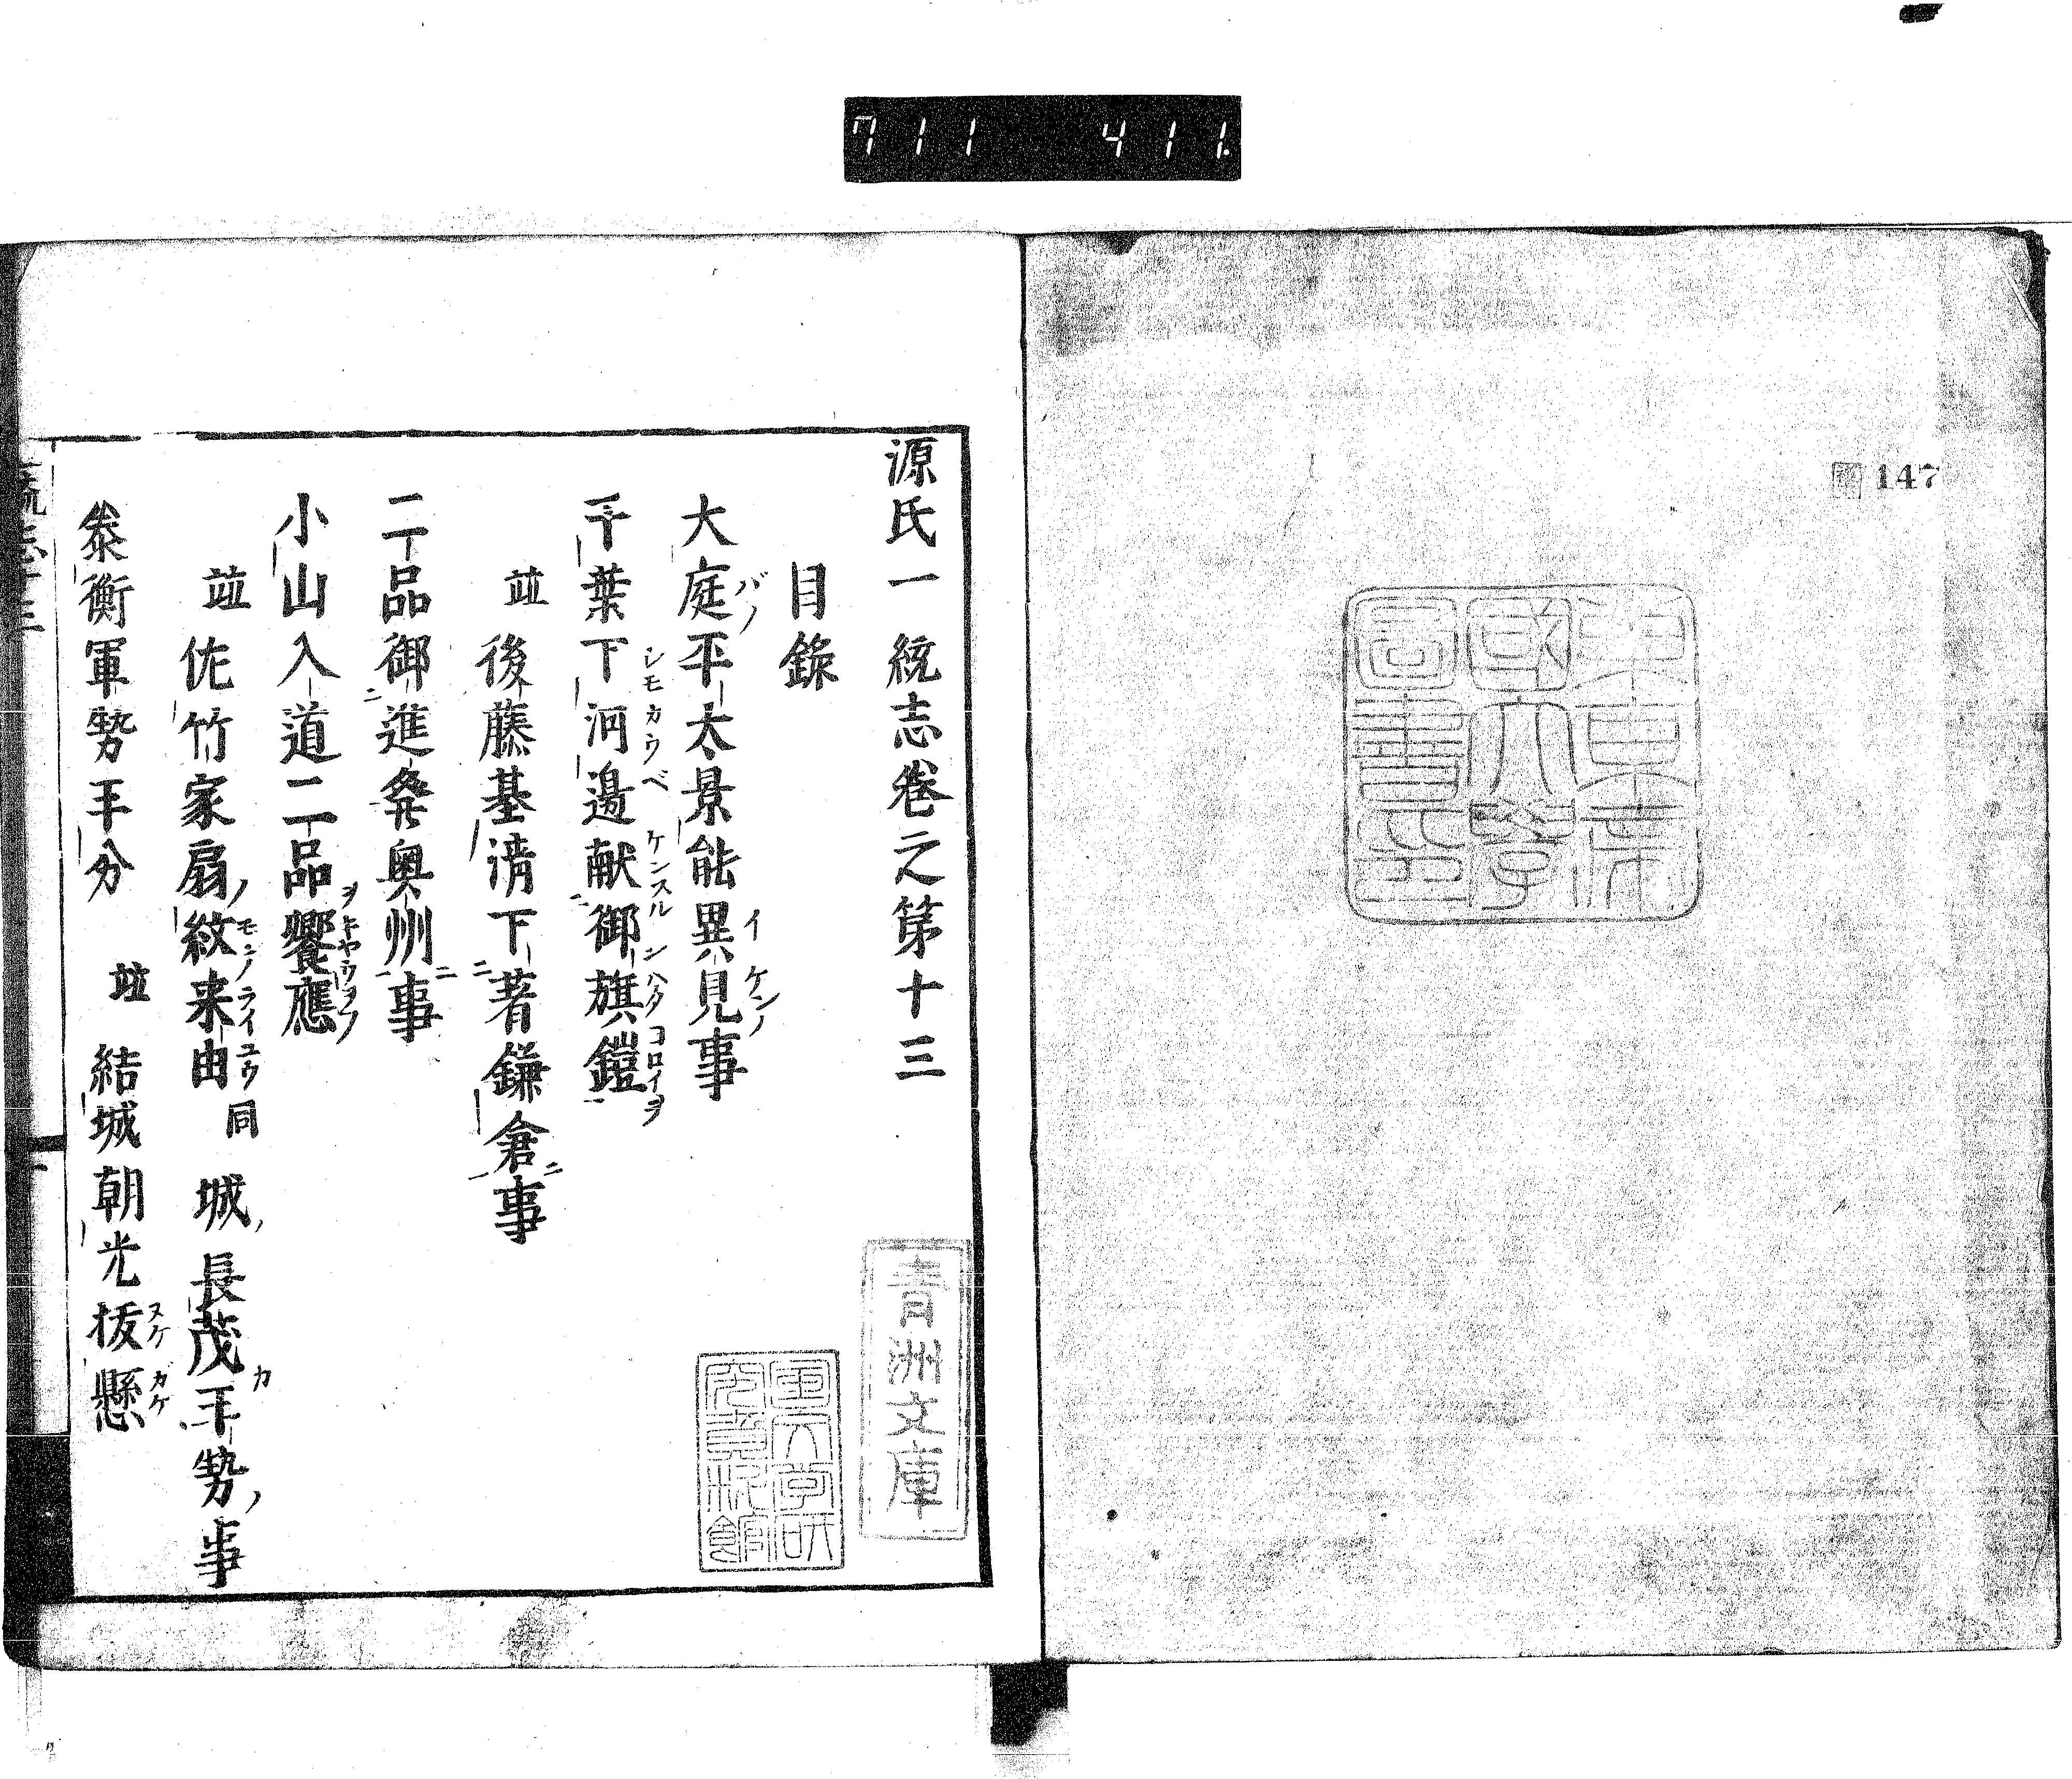 711 411
147
東京帝
國大學
圖書印
源氏一統志卷之第十三
目録
大庭平太景能異見事
千葉下河邊献御旗鎧
並後藤基清下著鎌倉事
二品御進發奥州事
小山入道二品饗應
並佐竹家扇紋来由同城長茂手勢事
泰衡軍勢手分並結城朝光抜懸
青洲文庫